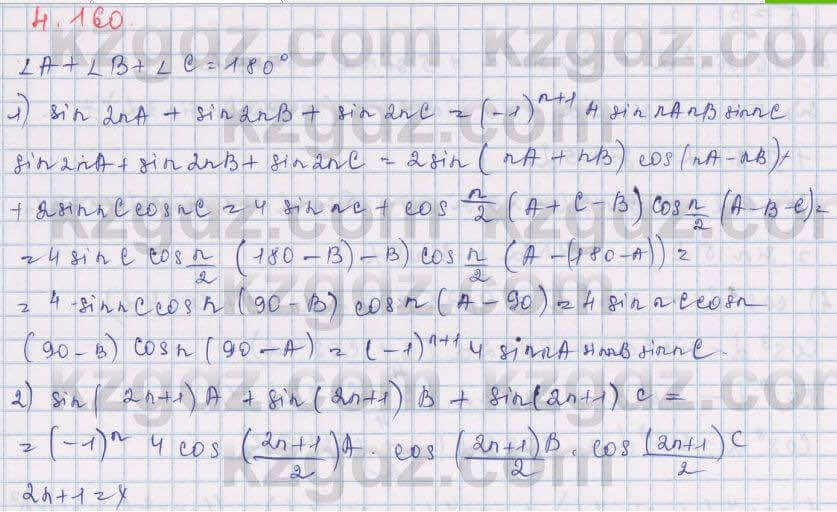 4.160.
∠A + ∠B + ∠C = 180°
1) sin 2nA + sin 2nB + sin 2nC = (-1)^{n+1} 4 sin nA nB sin nC
sin 2nA + sin 2nB + sin 2nC = 2 sin (nA + nB) cos (nA - nB) +
+ 2 sin nC cos nC = 4 sin nC + cos n/2 (A + C - B) cos n/2 (A - B - C) =
= 4 sin C cos n/2 (180 - B) - B) cos n/2 (A - (180 - A)) =
= 4 · sin nC cos n (90 - B) cos n (A - 90) = 4 sin nC cos n
(90 - B) cos n (90 - A) = (-1)^{n+1} 4 sin nA sin nB sin nC.
2) sin (2n+1) A + sin (2n+1) B + sin (2n+1) C =
= (-1)^n 4 cos ((2n+1)/2) A · cos ((2n+1)/2) B · cos ((2n+1)/2) C
2n+1 = x
kzgdz.com